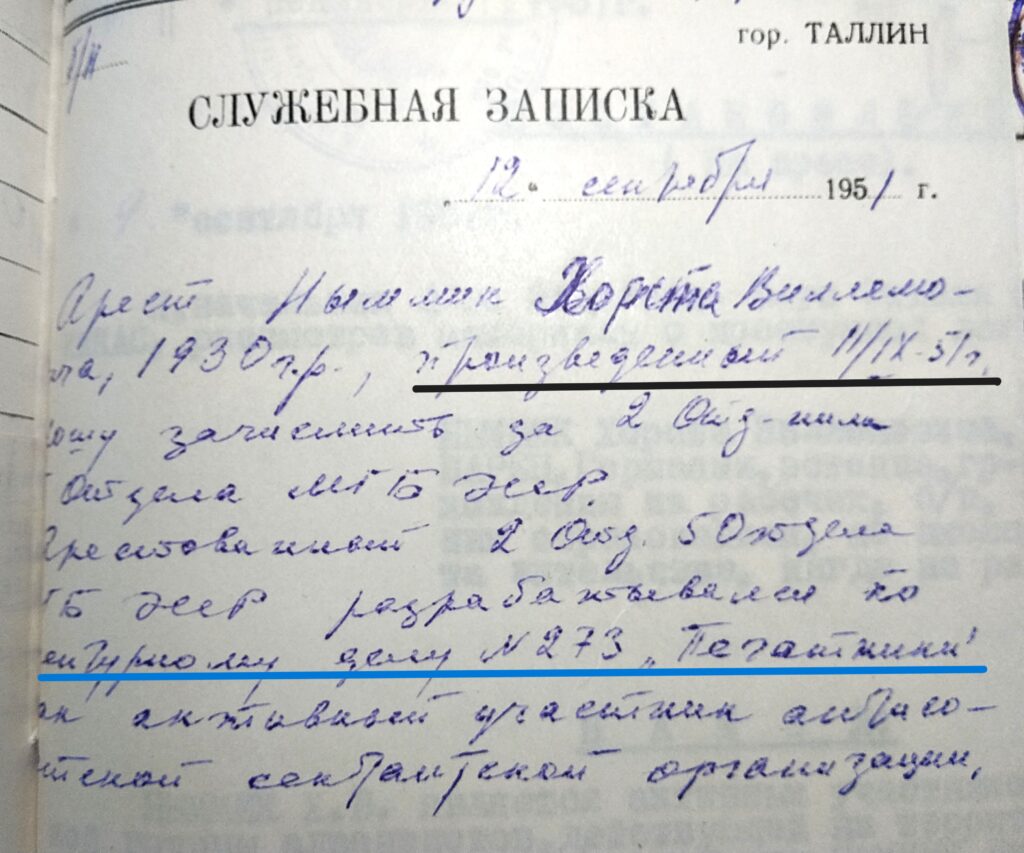 б/н
гор. ТАЛЛИН
СЛУЖЕБНАЯ ЗАПИСКА
„12“ сентября 1951 г.
Арест Ныммик Хорста Виллемо-
ча, 1930 г.р., произведенный 11/IX-51г.
ошу зачислить за 2 Отд-нием
Отдела МГБ ЭССР
Арестованный 2 Отд. 5 Отдела
ГБ ЭССР разрабатывался по
ентурному делу N 273 „Печатники“
ак активный участник антисо-
етской сектантской организации,